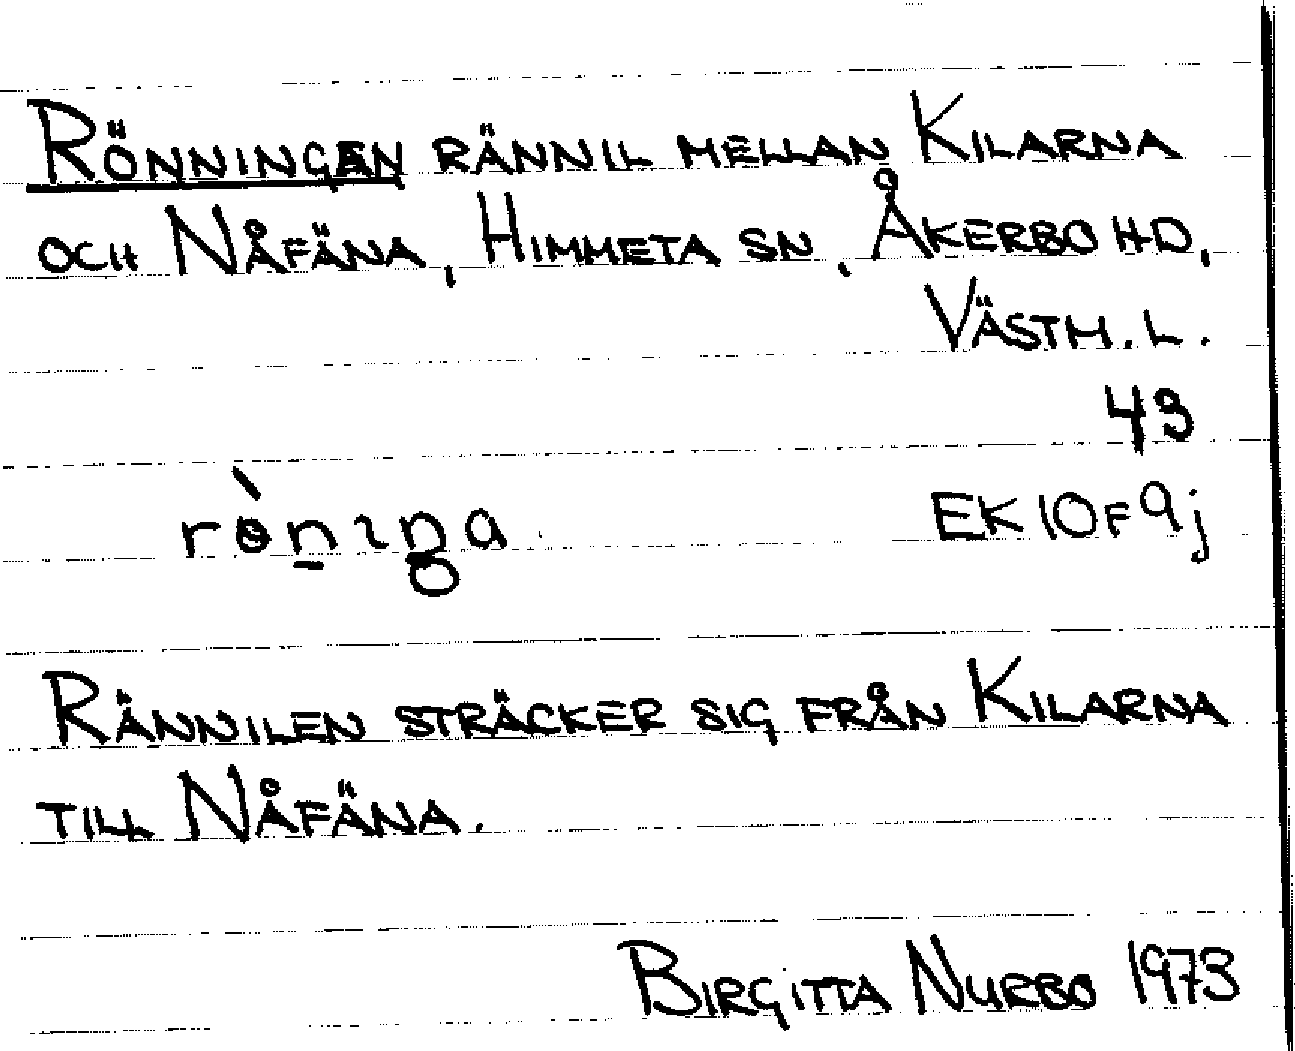 RÖNNINGEN RÄNNIL MELLAN KILARNA
OCH NÅFÄNA, HIMMETA SN, ÅKERBO HD,
VÄSTM. L.
43
rö̀nıŋa EK 10F 9j
RÄNNILEN STRÄCKER SIG FRÅN KILARNA
TILL NÅFÄNA.
BIRGITTA NURBO 1973